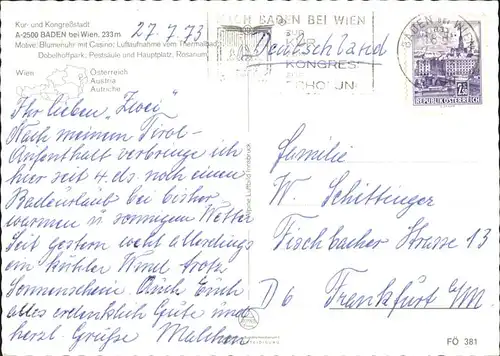 Kur- und Kongreßstadt
A-2500 BADEN bei Wien, 233 m
Motive: Blumenuhr mit Casino; Luftaufnahme vom Thermalbad;
Dobelhoffpark; Pestsäule und Hauptplatz, Rosarium
27.7.73
NACH BADEN BEI WIEN
ZUR
KUR
KONGRESS
ERHOLUNG
BADEN bei WIEN
REPUBLIK ÖSTERREICH
Deutschland
Wien
Österreich
Austria
Autriche
Ihr lieben "Zwei"
Nach meinem Tirol-
Aufenthalt verbringe ich
hier seit 4. ds. noch einen
Badeurlaub bei bisher
warmen u. sonnigem Wetter
Seit gestern weht allerdings
ein kühler Wind trotz
Sonnenschein. Auch Euch
alles erdenklich Gute und
herzl. Grüße Malchen
Familie
W. Schittinger
Fischbacher Strasse 13
D 6 Frankfurt a/M
Luftbild Innsbruck
FÖ 381